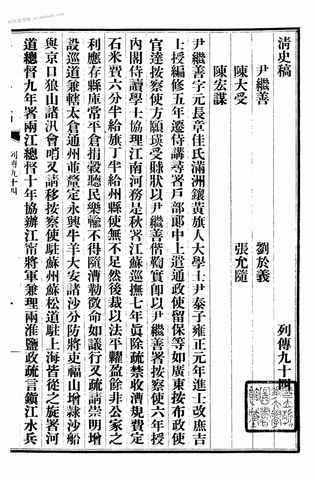 清史稿
列傳九十四
尹繼善
劉於義
陳大受
張允隨
陳宏謀
尹繼善字元長章佳氏滿洲鑲黃旗人大學士尹泰子雍正元年進士改庶吉
士授編修五年遷侍講尋署戶部郎中上遣通政使留保等如廣東按布政使
官達按察使方願瑛受賕狀以尹繼善偕鞫實卽以尹繼善署按察使六年授
內閣侍讀學士協理江南河務是秋署江蘇巡撫七年眞除疏禁收漕規費定
石米費六分半給旗丁半給州縣使無不足然後裁以法平糶盈餘非公家之
利應存縣庫常平倉捐穀聽民樂輸不得隨漕勒徵命如議行又疏請崇明增
設巡道兼轄太倉通州並釐定永興牛羊大安諸沙分防將吏福山增隸沙船
與京口狼山諸汛會哨又請移按察使駐蘇州蘇松道駐上海皆從之旋署河
道總督九年署兩江總督十年協辦江甯將軍兼理兩淮鹽政疏言鎭江水兵
列傳九十四